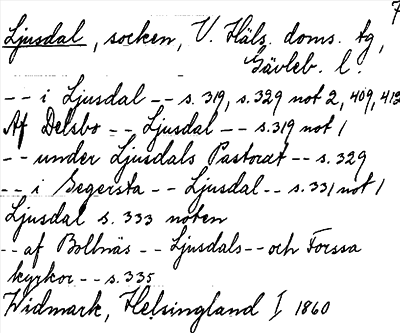 Ljusdal, socken, V. Häls. doms. tg,
Gävleb. l.
-- i Ljusdal -- s. 319, s. 329 not 2, 409, 412
Af Delsbo -- Ljusdal -- s. 319 not 1
-- under Ljusdals Pastorat -- s. 329
-- i Segersta -- Ljusdal -- s. 331 not 1
Ljusdal s. 333 noten
-- af Bollnäs -- Ljusdals -- och Forssa
kyrkor -- s. 335
Widmark, Helsingland I 1860